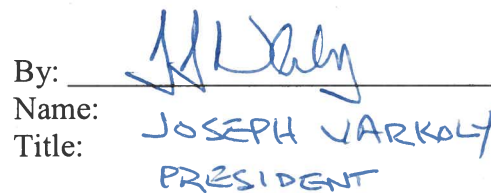 By:
Name: JOSEPH VARKOLY
Title: PRESIDENT